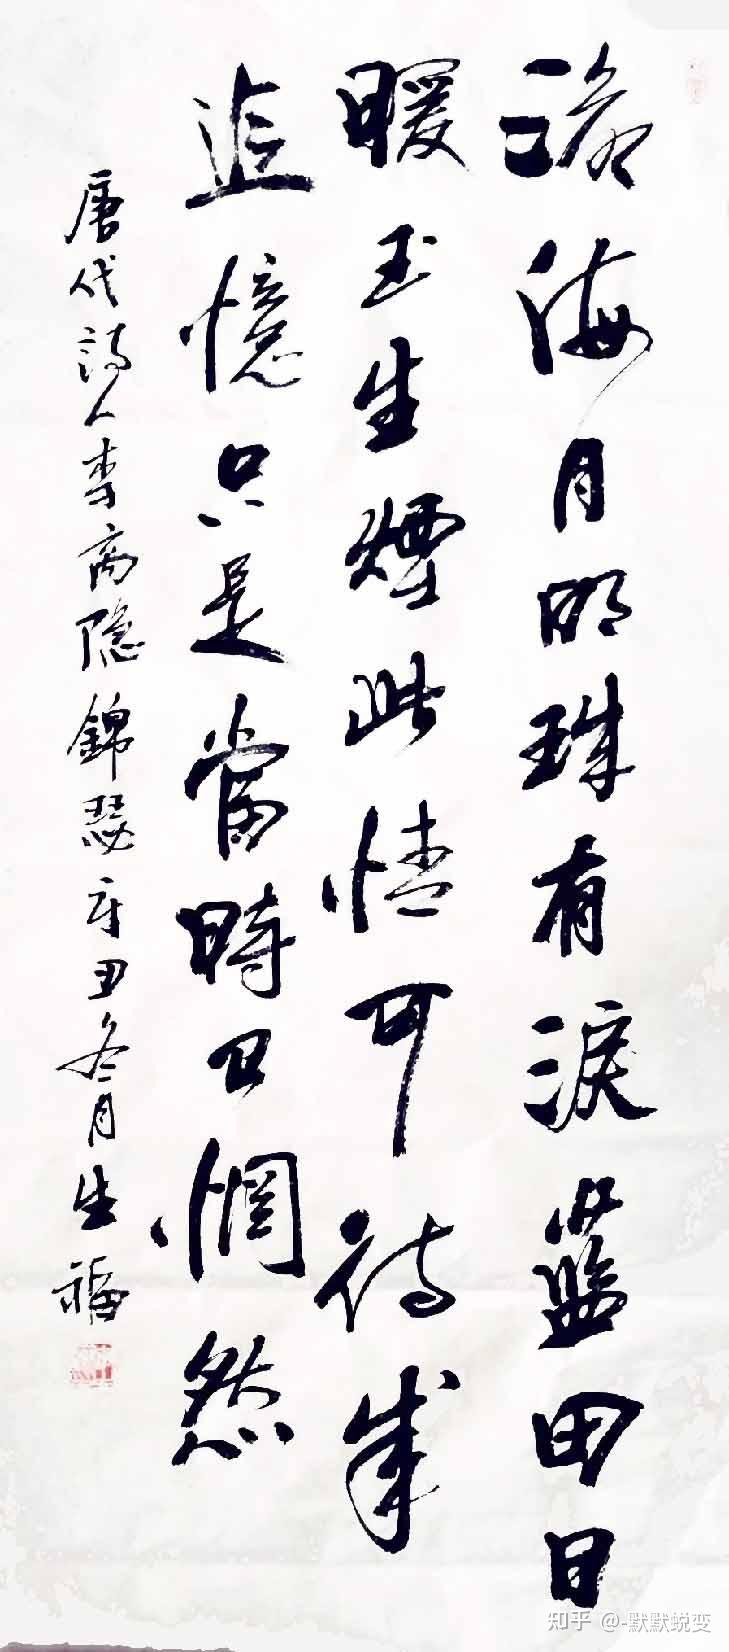 滄海月明珠有淚藍田日
暖玉生煙此情可待成
追憶只是當時已惘然
唐代詩人李商隐錦瑟辛丑冬月生福
知乎 @-默默蜕变